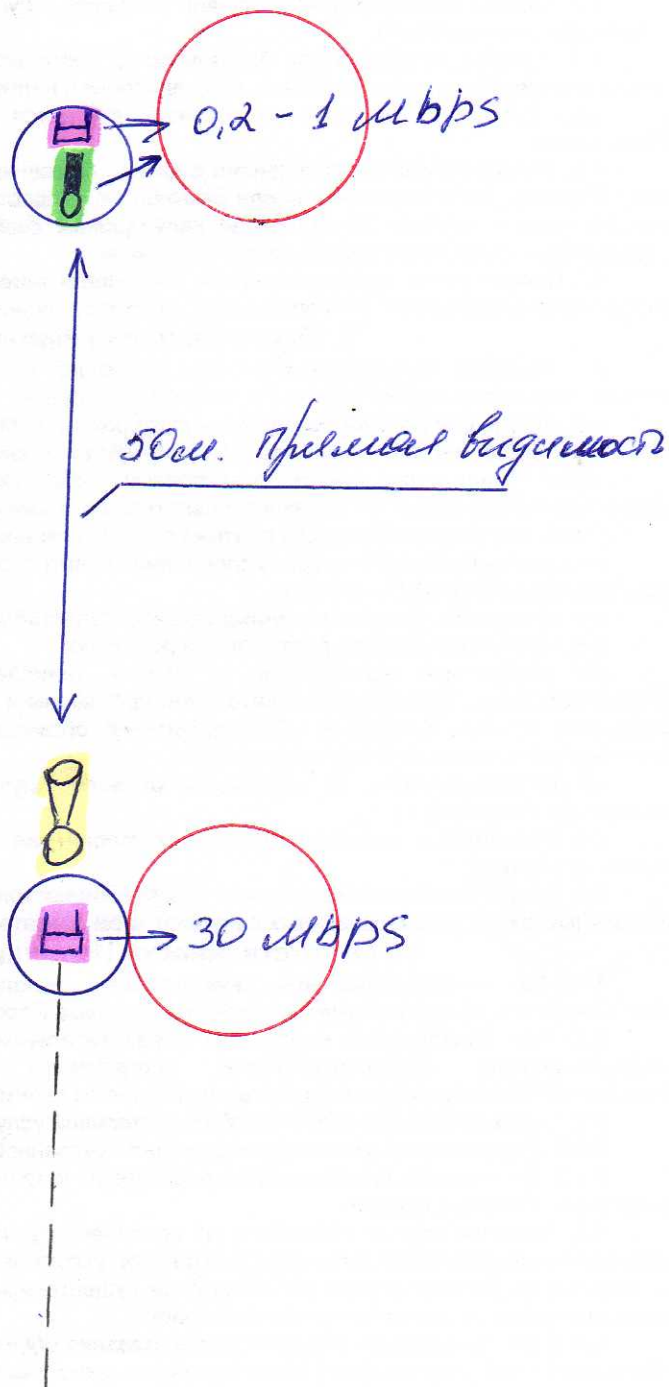 0,2 - 1 Mbps
50м. прямая видимость
30 Mbps